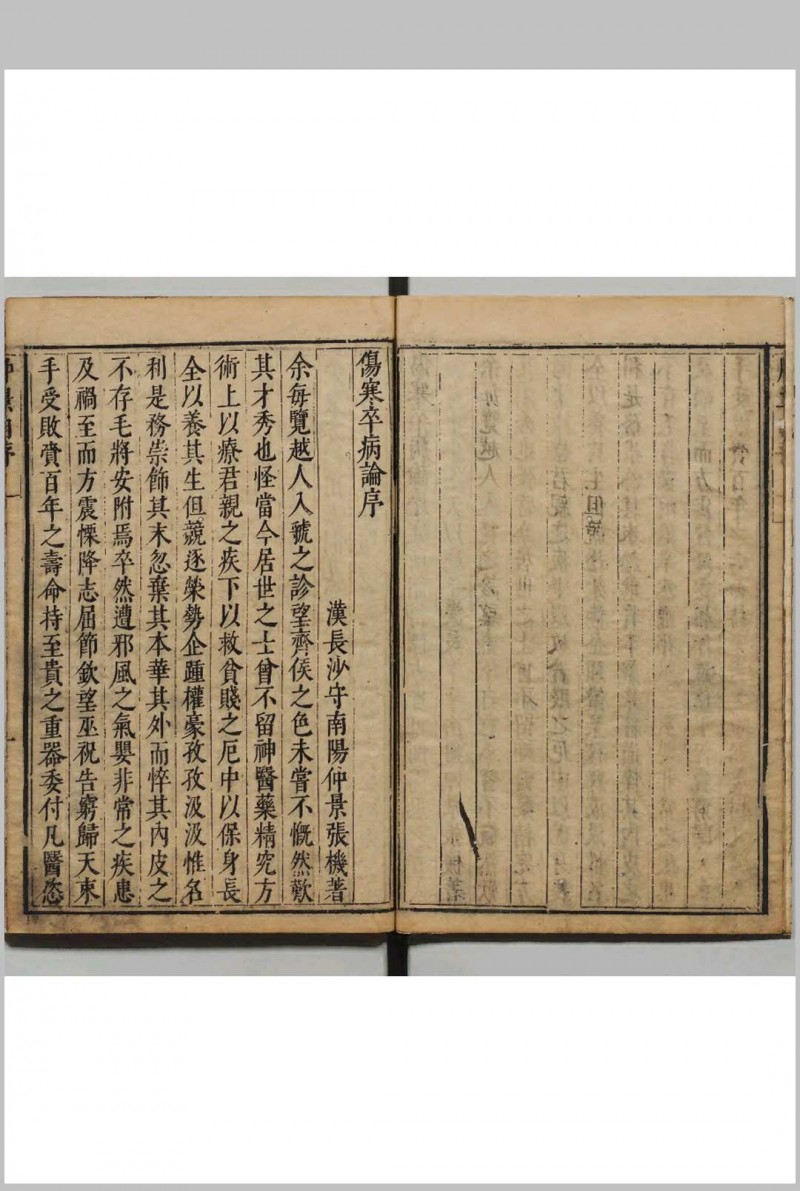 傷寒卒病論序
漢長沙守南陽仲景張機著
余每覽越人入虢之診望齊侯之色未嘗不慨然歎
其才秀也怪當今居世之士曾不留神醫藥精究方
術上以療君親之疾下以救貧賤之厄中以保身長
全以養其生但競逐榮勢企踵權豪孜孜汲汲惟名
利是務崇飾其末忽棄其本華其外而悴其內皮之
不存毛將安附焉卒然遭邪風之氣嬰非常之疾患
及禍至而方震慄降志屈節欽望巫祝告窮歸天束
手受敗賫百年之壽命持至貴之重器委付凡醫恣